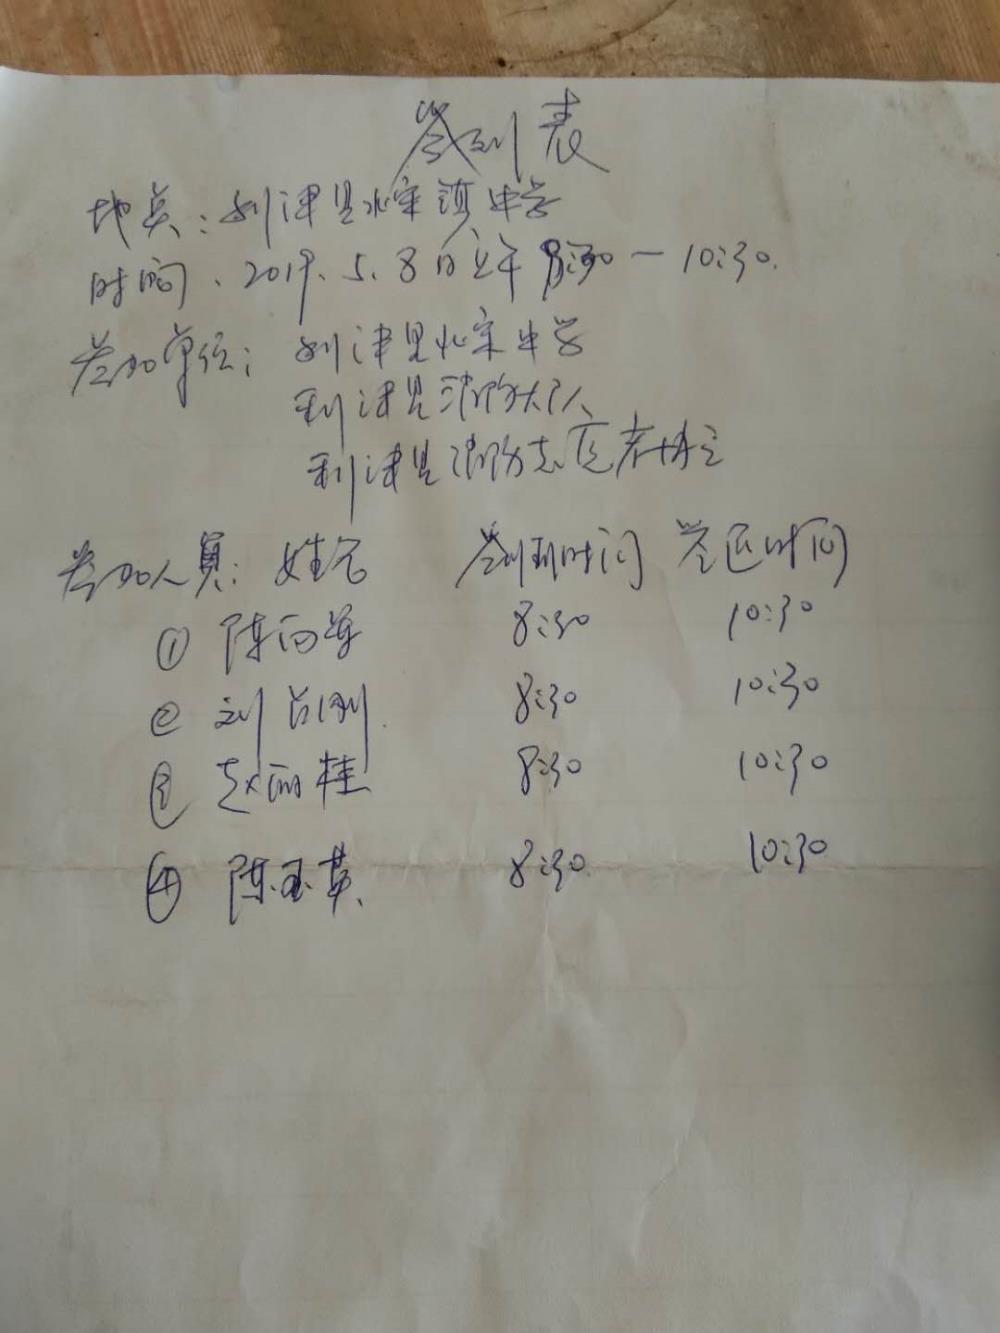 签到表
地点：利津县北宋镇中学
时间.2019.5.8日上午8:30—10:30.
参加单位：利津县北宋中学
利津县消防大队
利津县消防志愿者协会
参加人员：姓名 签到时间 签退时间
① 陈向军 8:30 10:30
② 刘占刚. 8:30 10:30
③ 赵丽桂 8:30 10:30
④ 陈玉英. 8:30. 10:30